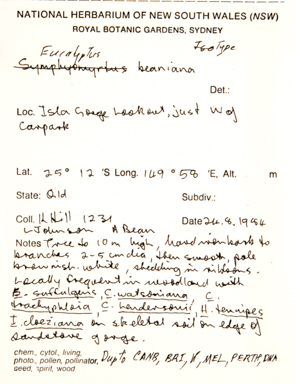 NATIONAL HERBARIUM OF NEW SOUTH WALES (NSW)
ROYAL BOTANIC GARDENS, SYDNEY
Isotype
Eucalyptus
Symphyomyrtus beaniana
Det.:
Loc. Isla Gorge Lookout, just W of
Carpark
Lat. 25° 12 'S Long. 149 ° 58 'E, Alt. m
State: Qld Subdiv.:
Coll. K Hill 1231 Date 24.8.1984
L Johnson A Bean
Notes Tree to 10 m high, hard ironbark to
branches 2-5 cm dia, then smooth, pale
brownish-white, shedding in ribbons.
Locally frequent in woodland with
E. suffulgens, C. watsoniana C.
trachyphloia C. hendersonii, H. tenuipes
E. cloeziana on skeletal soil on edge of
sandstone gorge.
chem., cytol., living,
photo., pollen, pollinator,
seed, spirit, wood
Dup to CANB, BRI, MEL, PERTH, DNA